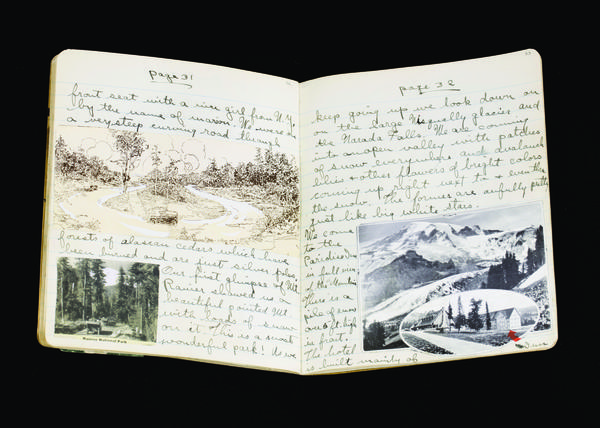 page 31
front seat with a nice girl from N.Y.
by the name of marion. We were on
a very steep curving road through
forests of alascan cedars which have
been burned and are just silver poles.
Our first glimpse of Mt.
Ranier showed us a
beautiful pointed Mt.
with loads of snow
on it. This is a most
wonderful park! As we
Rainier National Park
page 32
keep going up we look down on
on the large Nisqually glacier and
the Narada Falls. We are coming
into an open valley with patches
of snow everywhere and avalanch
lilies & other flowers of bright colors
coming up right next to & even thru
the snow. The former are awfully pretty
just like big white stars.
We come
to the
Paradise Inn
in full view
of the Mountain
There is a
pile of snow
ft. high
in front.
The hotel
is built mainly of